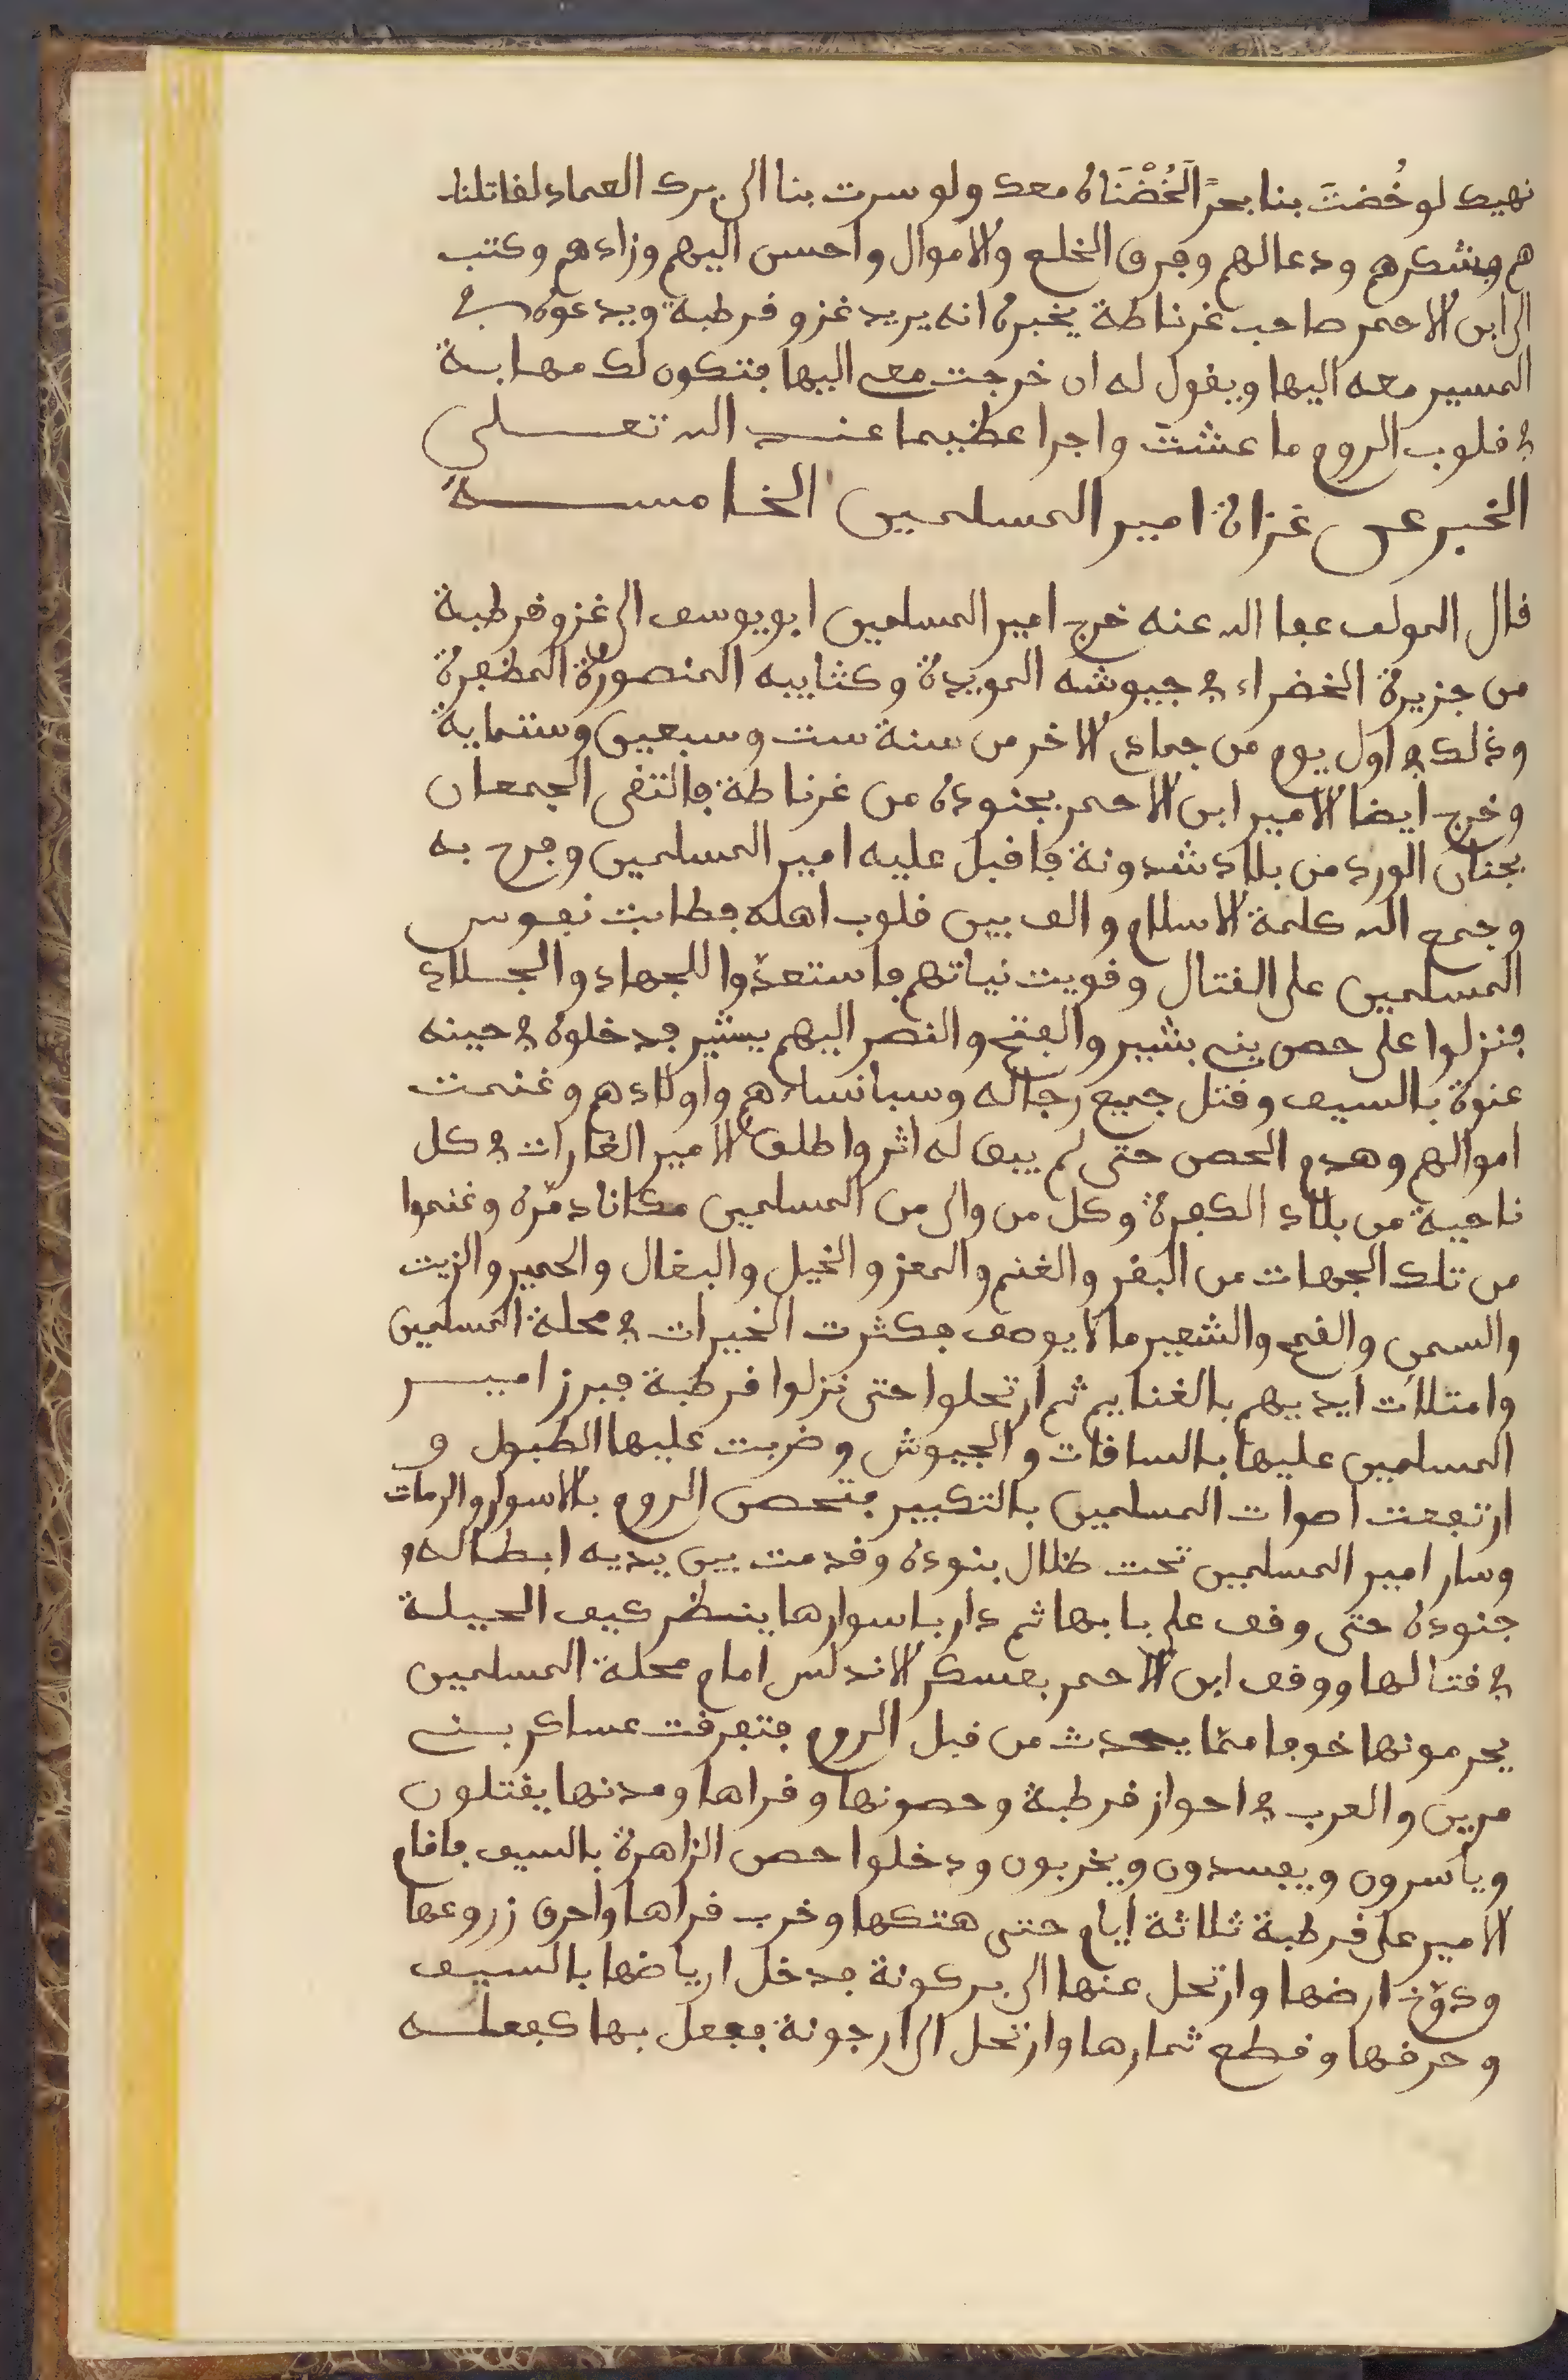 نهيك لو خُضتَ بنا بحرًا لَخُضْنَاه معك ولو سرت بنا الى برك العماد لقاتلنا
هم فشكرهم ودعا لهم وفرق الخلع والاموال واحسن اليهم وزادهم وكتب
الى ابن الاحمر صاحب غرناطة يخبره انه يريد غزو قرطبة ويدعوه في
المسير معه اليها ويقول له ان خرجت معي اليها فتكون لك مهابة
في قلوب الروم ما عشت واجرا عظيما عند الله تعلى
الخبر عن غزاة امير المسلمين الخامسة
قال المولف عفا الله عنه خرج امير المسلمين ابو يوسف الى غزو قرطبة
من جزيرة الخضراء في جيوشه المويدة وكتايبه المنصورة المظفرة
وذلك في اول يوم من جمادى الاخر من سنة ست وسبعين وستماية
وخرج ايضا الامير ابن الاحمر بجنوده من غرناطة فالتقى الجمعان
بجنان الورد من بلاد شدونة فاقبل عليه امير المسلمين وفرح به
وجمع الله كلمة الاسلام والف بين قلوب اهله فطابت نفوس
المسلمين على القتال وقويت نياتهم فاستعدّوا للجهاد والجلاد
فنزلوا على حصن بني بشير والفتح والنصر اليهم يشير فدخلوه في حينه
عنوة بالسيف وقتل جميع رجاله وسبا نساءهم واولادهم وغنمت
اموالهم وهدم الحصن حتى لم يبق له اثر واطلق الامير الغارات في كل
ناحية من بلاد الكفرة وكل من والى من المسلمين مكانا دمّره وغنموا
من تلك الجهات من البقر والغنم والمعز والخيل والبغال والحمير والزيت
والسمن والقمح والشعير ما لا يوصف فكثرت الخيرات في محلة المسلمين
وامتلات ايديهم بالغنايم ثم ارتحلوا حتى نزلوا قرطبة فبرز امير
المسلمين عليها بالساقات والجيوش وضربت عليها الطبول و
ارتفعت اصوات المسلمين بالتكبير فتحصن الروم بالاسوار والرمات
وسار امير المسلمين تحت ظلال بنوده وقدمت بين يديه ابطاله و
جنوده حتى وقف على بابها ثم دار باسوارها ينظر كيف الحيلة
في قتالها ووقف ابن الاحمر بعسكر الاندلس امام محلة المسلمين
يحرمونها خوفا ممّا يحدث من قبل الروم فتفرقت عساكر بني
مرين والعرب في احواز قرطبة وحصونها وقراها ومدنها يقتلون
وياسرون ويفسدون ويخربون ودخلوا حصن الزاهرة بالسيف فاقام
الامير على قرطبة ثلاثة ايام حتى هتكها وخرب قراها واحرق زروعها
ودوّخ ارضها وارتحل عنها الى بركونة فدخل ارياضها بالسيف
وحرقها وقطع ثمارها وارتحل الى ارجونة ففعل بها كفعله